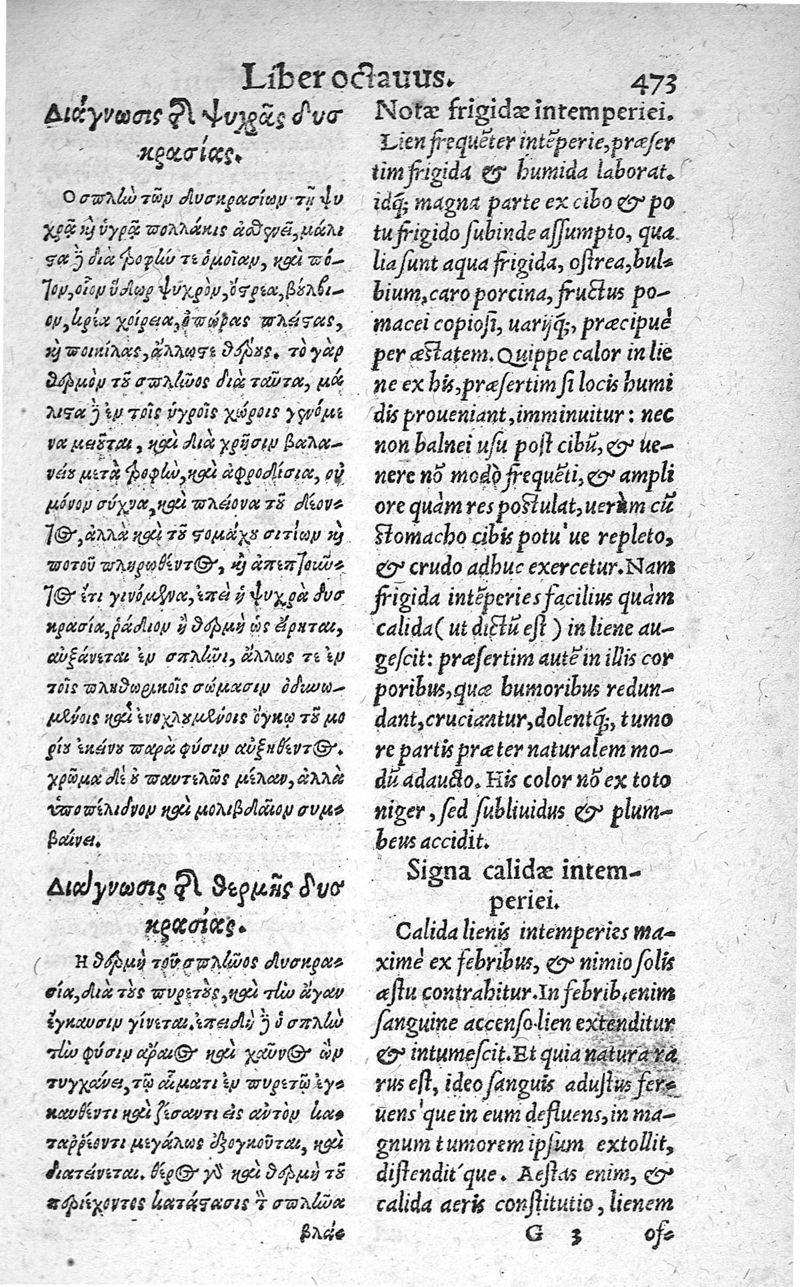 Liber octauus. 473
Διάγνωσις τ῀ ψυχρᾶς δυσ
κρασίας.
Ο σπλὼ τῶν δυσκρασίων τῇ ψυ
χρᾷ κὴ ὑγρᾷ πολλάκις ἀσθενεῖ, μάλι
ϛα ἢ διὰ τροφὼ τε ὁμοίαν, καὶ πό-
τον, οἷον ὕδωρ ψυχρὸν, ὄϛρεα, βύλβι-
ον, κρέα χοίρεια, ὀπώρας πλείϛας,
κὴ ποικίλας, ἄλλωϛε θέρους. τὸ γὰρ
θερμὸν τοῦ σπλωὸς διὰ ταῦτα, μά
λιϛα ἢ ἐν τοῖς ὑγροῖς χώροις γενόμε
να μειοῦται, καὶ διὰ χρῆσιν βαλα-
νείου μετὰ τροφὼ, καὶ ἀφροδίσια, οὐ
μόνον σύχνα, καὶ πλείονα τοῦ δέον-
τος, ἀλλὰ καὶ τοῦ ϛομάχου σιτίων κὴ
ποτοῦ πληρωθέντος, κὴ
τος ἔτι γινόμενα, ἐπεὶ ἡ ψυχρὰ δυσ
κρασία, ῥάδιον ἢ θερμὴ ὡς εἴρηται,
αὐξάνεται ἐν σπλωὶ, ἄλλως τε ἐν
τοῖς πληθωρικοῖς σώμασιν ὀδυνω-
μένοις καὶ ἐνοχλουμένοις ὄγκῳ τοῦ μο
ρίου ἐκείνου παρὰ φύσιν αὐξηθέντος.
χρῶμα δὲ οὐ παντελῶς μέλαν, ἀλλὰ
ὑποπέλιδνον καὶ μολιβδαῖον συμ-
βαίνει.
Διάγνωσις τ῀ θερμῆς δυσ
κρασίας.
Η θερμὴ τοῦ σπλωὸς δυσκρα-
σία, διὰ τοὺς πυρετοὺς, καὶ τὼ ἄγαν
ἔγκαυσιν γίνεται. ἐπειδὴ ἢ ὁ σπλὼ
τὼ φύσιν ἀραιὸς καὶ χαῦνος ὢν
τυγχάνει, τῷ αἵματι ἐν πυρετῷ ἐγ-
καυθέντι καὶ ζέσαντι εἰς αὐτὸν κα-
ταῤῥέοντι μεγάλως ἐξογκοῦται, καὶ
διατείνεται. θέρος γὸ καὶ θερμὴ τοῦ
περιέχοντος κατάϛασις τ σπλῶα
βλά-
Notæ frigidæ intemperiei.
Lien frequẽter intẽperie, præser
tim frigida & humida laborat.
idq; magna parte ex cibo & po
tu frigido subinde assumpto, qua
lia sunt aqua frigida, ostrea, bul-
bium, caro porcina, fructus po-
macei copiosi, uarijq;, præcipuè
per æstatem. Quippe calor in lie
ne ex his, præsertim si locis humi
dis proueniant, imminuitur: nec
non balnei usu post cibũ, & ue-
nere nõ modò frequẽti, & ampli
ore quàm res postulat, uerùm cũ
stomacho cibis potu'ue repleto,
& crudo adhuc exercetur. Nam
frigida intẽperies facilius quàm
calida (ut dictũ est) in liene au-
gescit: præsertim autẽ in illis cor
poribus, quæ humoribus redun-
dant, cruciantur, dolentq;, tumo
re partis præter naturalem mo-
dũ adaucto. His color nõ ex toto
niger, sed subliuidus & plum-
beus accidit.
Signa calidæ intem-
periei.
Calida lienis intemperies ma-
ximè ex febribus, & nimio solis
æstu contrahitur. In febrib. enim
sanguine accenso lien extenditur
& intumescit. Et quia natura ra
rus est, ideo sanguis adustus fer-
uens'que in eum defluens, in ma-
gnum tumorem ipsum extollit,
distendit'que. Aestas enim, &
calida aeris constitutio, lienem
G 3 of-